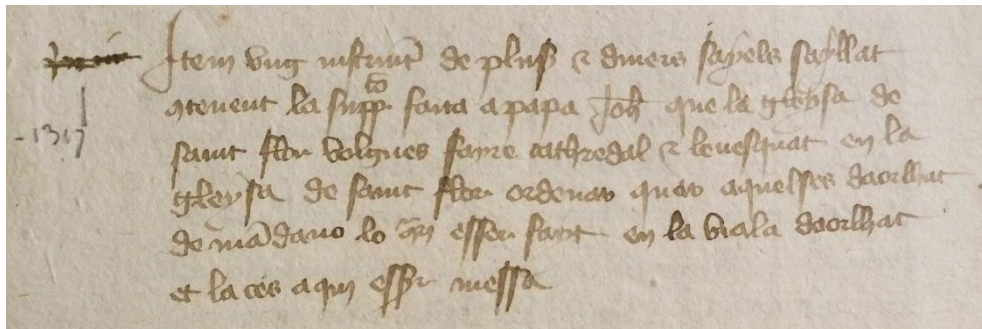 Item ung instrumt de plus & divers sayels sayllat
contenent la supp͞co faita a papa Joh̄ que la gleysa de
-1317
saint flor volgues fayre cathredal & levesquat en la
gleysa de saint flor ordenar quar aquelses daorlhat
de mādavo lo esser fayt en la viala daorlhat
et la aqui messa